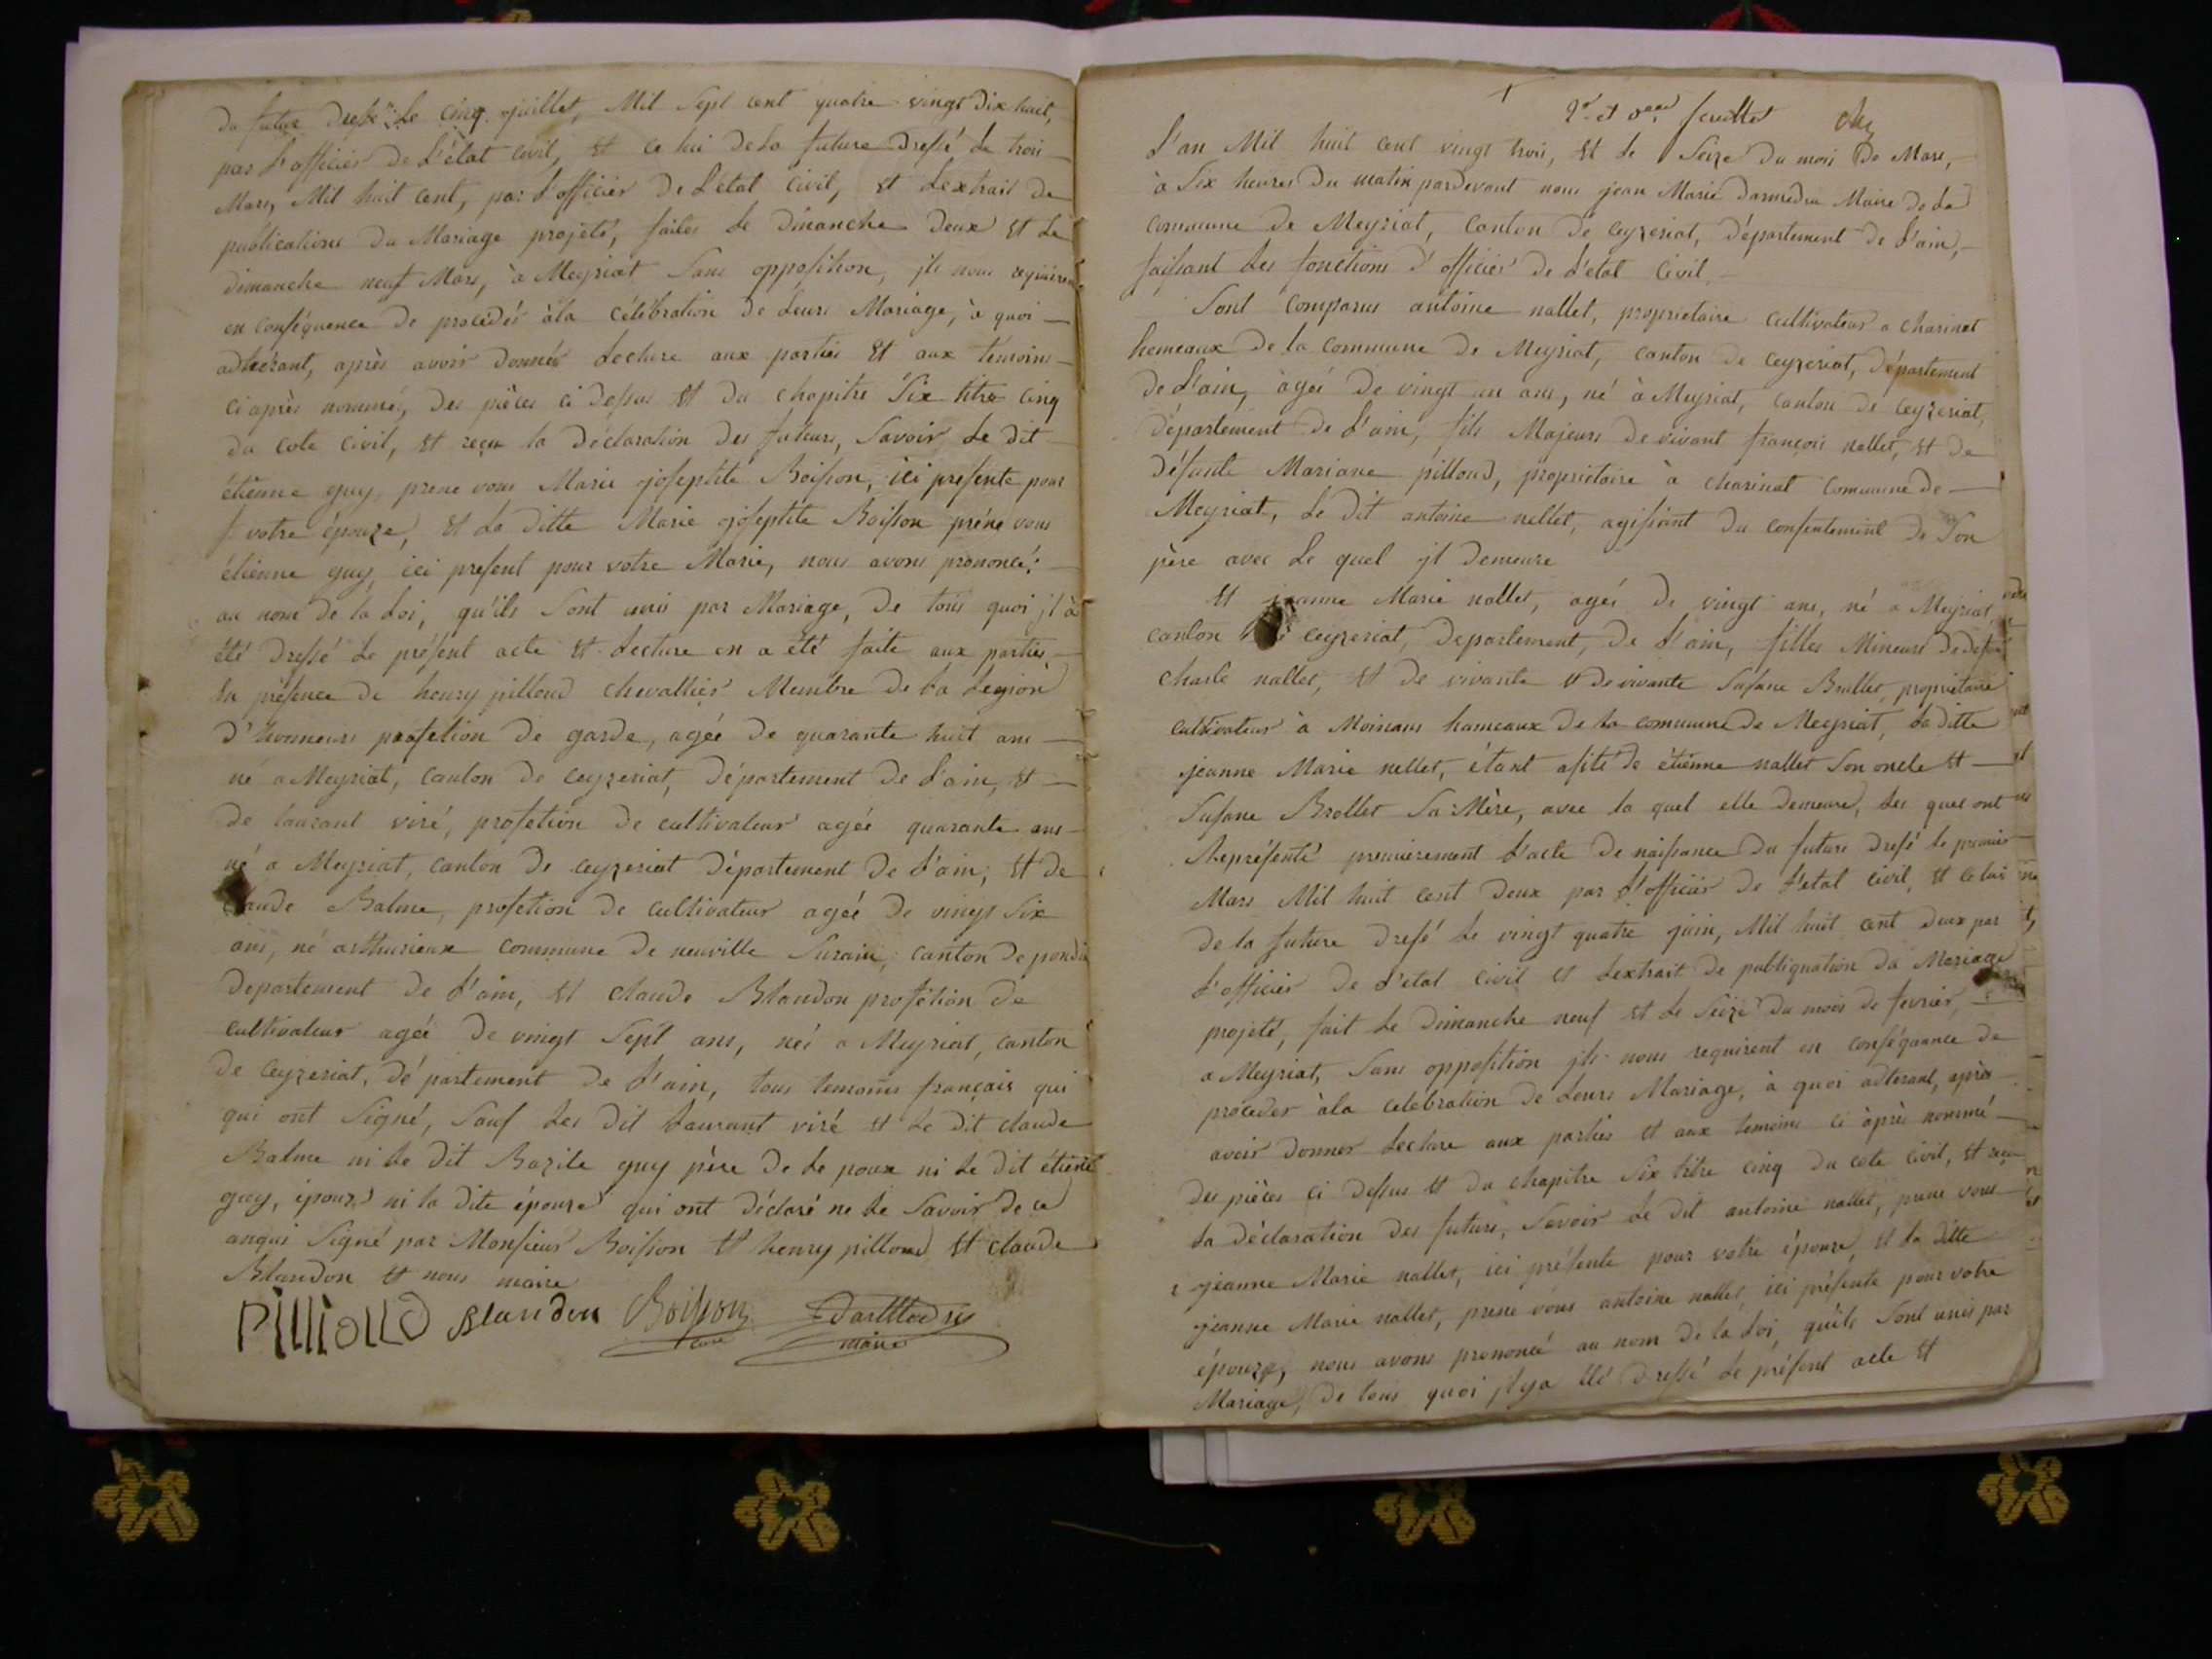 du futur dressé le cinq juillet, Mil Sept cent quatre vingt dix huit,
par l'officier de L'état civil, et ce lui de la future dressé Le trois
Mars, Mil huit cent, par L'officier De L'état civil, et Lextrait de
publications du Mariage projeté, faites le dimanche deux et Le
dimanche neuf Mars, à Meyriat Sans opposition, jls nous
en conséquence de procédér àla célébration de Leurs Mariage, à quoi
adherant, après avoir donnés Lecture aux parties Et aux temoins
ci après nommés, des pièces ci dessus Et du chapitre Six titre Cinq
du cote civil, et reçu la déclaration des futeurs, Savoir Le dit
étienne guy, prene vous Marie josephte Boisson, ici presente pour
votre épouze, et La ditte Marie josephte Boisson prene vous
étienne guy, ici present pour votre Marie, nous avons prononcé
au nom de la Loi, qu'ils Sont unis par Mariage, De tous quoi jl à
été dressé Le présent acte et Lecture en a été faite aux parties,
En présence de henry pilloud chevallier Membre de La Legion
d'honneurs profetion de garde, agée de quarante huit ans
né a Meyriat, canton de ceyzeriat, département de L'ain, et
de Laurant viré, profetion de cultivateur agée quarante ans
né a Meyriat, canton de ceyzeriat département de L'ain, et de
claude Balme, profetion de cultivateur agée de vingt Six
ans, né commune de neuville Surain, canton de
departement de L'ain, et claude Blandon profetion de
cultivateur agée de vingt Sept ans, née a Meyriat, canton
de Ceyzeriat, dé partement de L'ain, tous temoins français qui
qui ont Signé, Sauf Les dit Laurant viré et Le dit claude
Balme ni Le dit Bazile guy père de Le poux ni Le dit étiene
guy, époux ni la dite épouze qui ont déclaré ne Le Savoir de ce
anquis Signé par Monsieur Boisson et henry pilloud et claude
Blandon et nous maire
Pilliolld Blandon Boisson
maire
feuillet
L'an Mil huit cent vingt trois, et Le Seize du mois de Mars,
à Six heures du matin pardevant nous jean Marie Maire de La
commune de Meyriat, canton de ceyzeriat, département de L'ain,
faissant Les fonctions d'officier de L'etat Civil
Sont comparus antoine nallet, proprietaire cultivateur a charinat
hameaux de la commune de Meyriat, canton de ceyzeriat, département
de L'ain, agée de vingt un ans, né à Meyriat, canton de ceyzeriat,
département de L'ain, fils Majeurs de vivant françois nallet, et de
défunte Mariane pilloud, proprietaire à charinat commune de
Meyriat, Le dit antoine nallet, agissant du consentement de Son
père avec Le quel jl demeure
Et jeanne Marie nallet, agés de vingt ans, né a Meyriat
canton de ceyzeriat, departement, de L'ain, filles Mineurs de
charle nallet, et de vivante et de vivante Susane Brollet proprietaire
cultivateur à Moinans hameaux de la commune de Meyriat, La ditte
jeanne Marie nellet, étant asité de étienne nallet Son oncle et
Susane Brollet Sa Mère, avec la quel elle demeure, Les quel ont
Représenté premierement L'acte de naissance du future dresé le premier
Mars Mil huit cent deux par L'officier de L'etat civil, et celui
de la future dresé Le vingt quatre juin, Mil huit cent deux par
L'officier de L'etat civil et Lextrait de publiquation du Mariage
projeté, fait Le dimanche neuf et Le Seize du mois de fevrier,
a Meyriat, Sans opposition jls nous requirent en conséquance de
proceder àla celebration de Leurs Mariage, à quoi adherant, après
avoir donner Lecture aux parties et aux temoins ci àprès nommé
des pièces ci dessus et du chapitre Six titre cinq du cote civil, et reçu
la déclaration des futurs, Savoir Le dit antoine nallet, prene vous
jeanne Marie nallet, ici présente pour votre épouze, et la ditte
jeanne Marie nallet, prene vous antoine nallet, ici présente pour votre
épouze, nous avons prononcé au nom de la Loi, qu'ils Sont unis par
Mariage, De tous quoi jl ya été dressé Le présent acte et